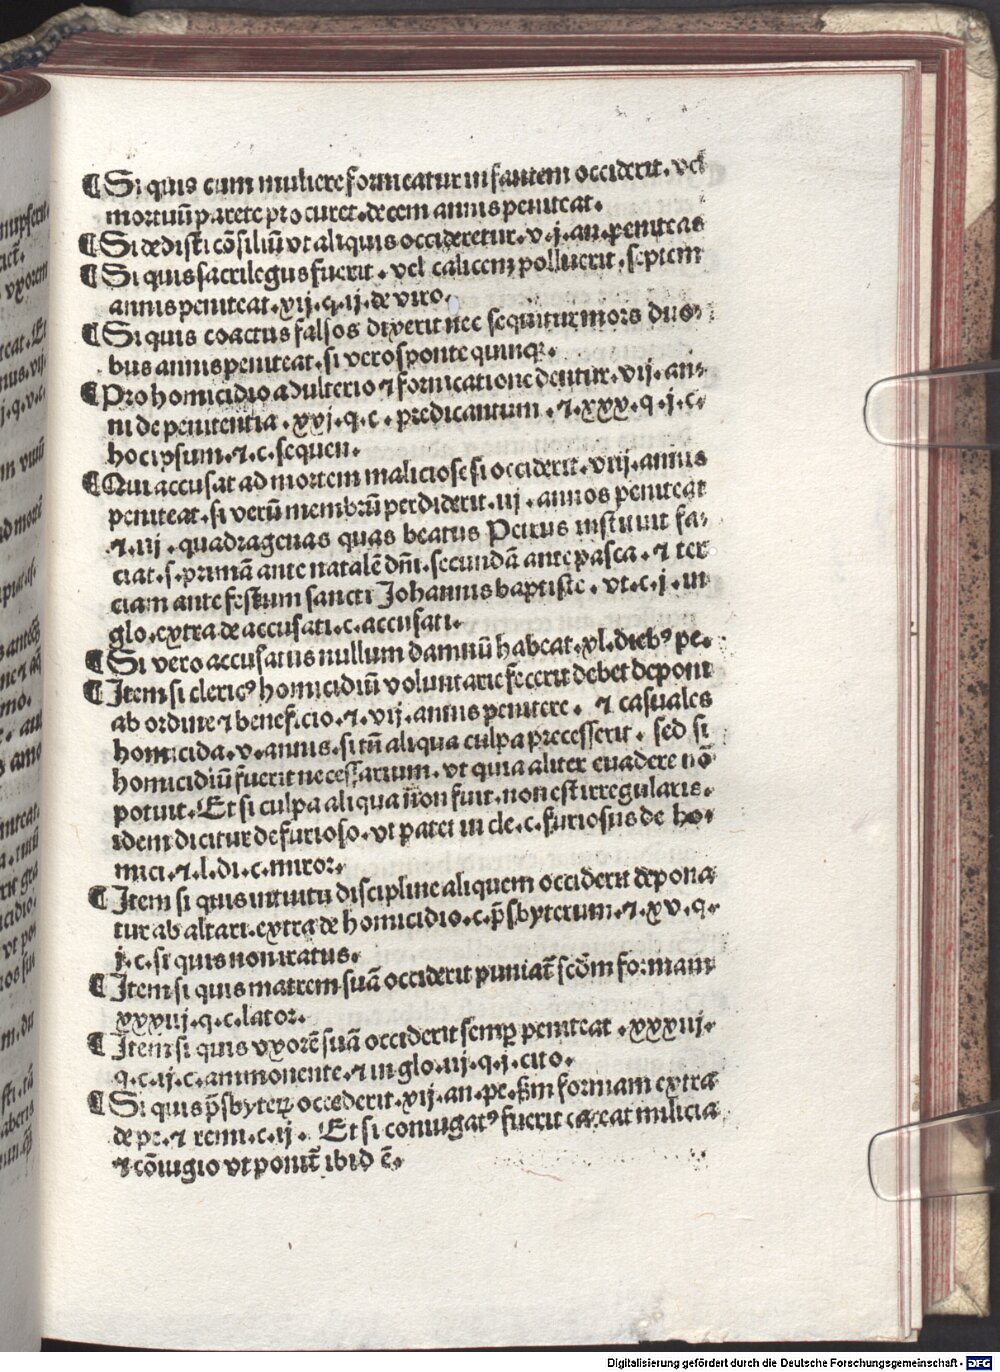 ¶ Si quis cum muliere fornicatur infantem occiderit. vel
mortuū parere procuret. decem annis peniteat.
¶ Si dedisti cōsiliū vt aliquis occideretur. v. j. an. peniteas
¶ Si quis sacrilegus fuerit. vel calicem polluerit. septem
annis peniteat. xij. q. ij. de viro.
¶ Si quis coactus falsos dixerit nec sequitur mors duo⸗
bus annis peniteat. si vero sponte quinqꝫ.
¶ Pro homicidio adulterio ⁊ fornicatione dentur. vij. an⸗
ni de penitentia. xxj. q. c. predicantum. ⁊. xxx. q. j. c.
hoc ipsum. ⁊. c. sequen.
¶ Qui accusat ad mortem maliciose si occiderit. viij. annis
peniteat. si verū membrū perdiderit. iij. annos peniteat
⁊. iij. quadragenas quas beatus Petrus instituit fa⸗
ciat. s. primā ante natalē dn̄i. secundā ante pasca. ⁊ ter
ciam ante festum sancti Johannis baptiste. vt. c. j. in
glo. extra de accusati. c. accusati.
¶ Si vero accusatus nullum damnū habeat. xl. diebꝰ pe.
¶ Item si clericꝰ homicidiū voluntarie fecerit debet deponi
ab ordine ⁊ beneficio. ⁊. vij. annis penitere. ⁊ casuales
homicida. v. annis. si tn̄ aliqua culpa precesserit. sed si
homicidiū fuerit necessarium. vt quia aliter euadere nō
potuit. Et si culpa aliqua non fuit. non est irregularis.
idem dicitur de furioso. vt patet in cle. c. furiosus de ho.
mici. ⁊. l. di. c. miror.
¶ Item si quis intuitu discipline aliquem occiderit depona
tur ab altari. extra de homicidio. c. p̄sbyterum. ⁊. xv. q.
j. c. si quis non iratus.
¶ Item si quis matrem suā occiderit puniat̄ scdm̄ formam
xxxiij. q. c. lator.
¶ Item si quis vxorē suā occiderit semꝑ peniteat. xxxiij.
q. c. ij. c. ammonente. ⁊ in glo. ij. q. j. cito.
¶ Si quis p̄sbyteꝝ occederit. xij. an. pe. ẜm formam extra
de pe. ⁊ remi. c. ij. Et si coniugatꝰ fuerit careat milicia
⁊ cōiugio vt ponit̄ ibid ē.
Digitalisierung gefördert durch die Deutsche Forschungsgemeinschaft - DFG